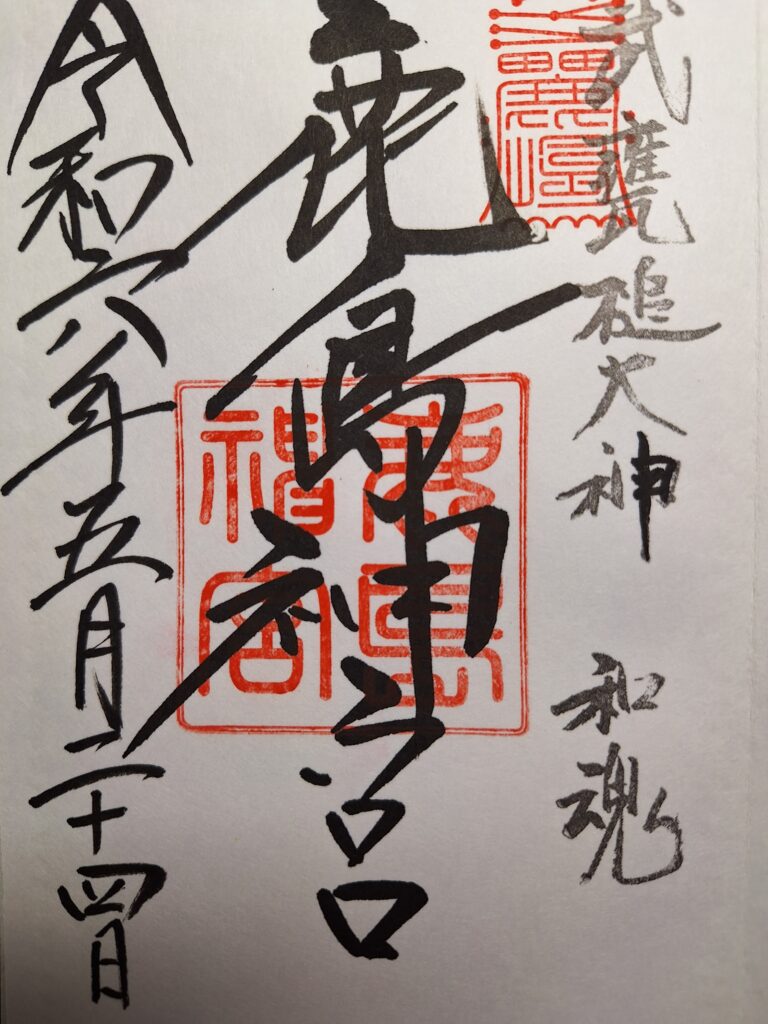 武甕槌大神　和魂
鹿島神宮
鹿島
神宮
令和六年五月二十四日